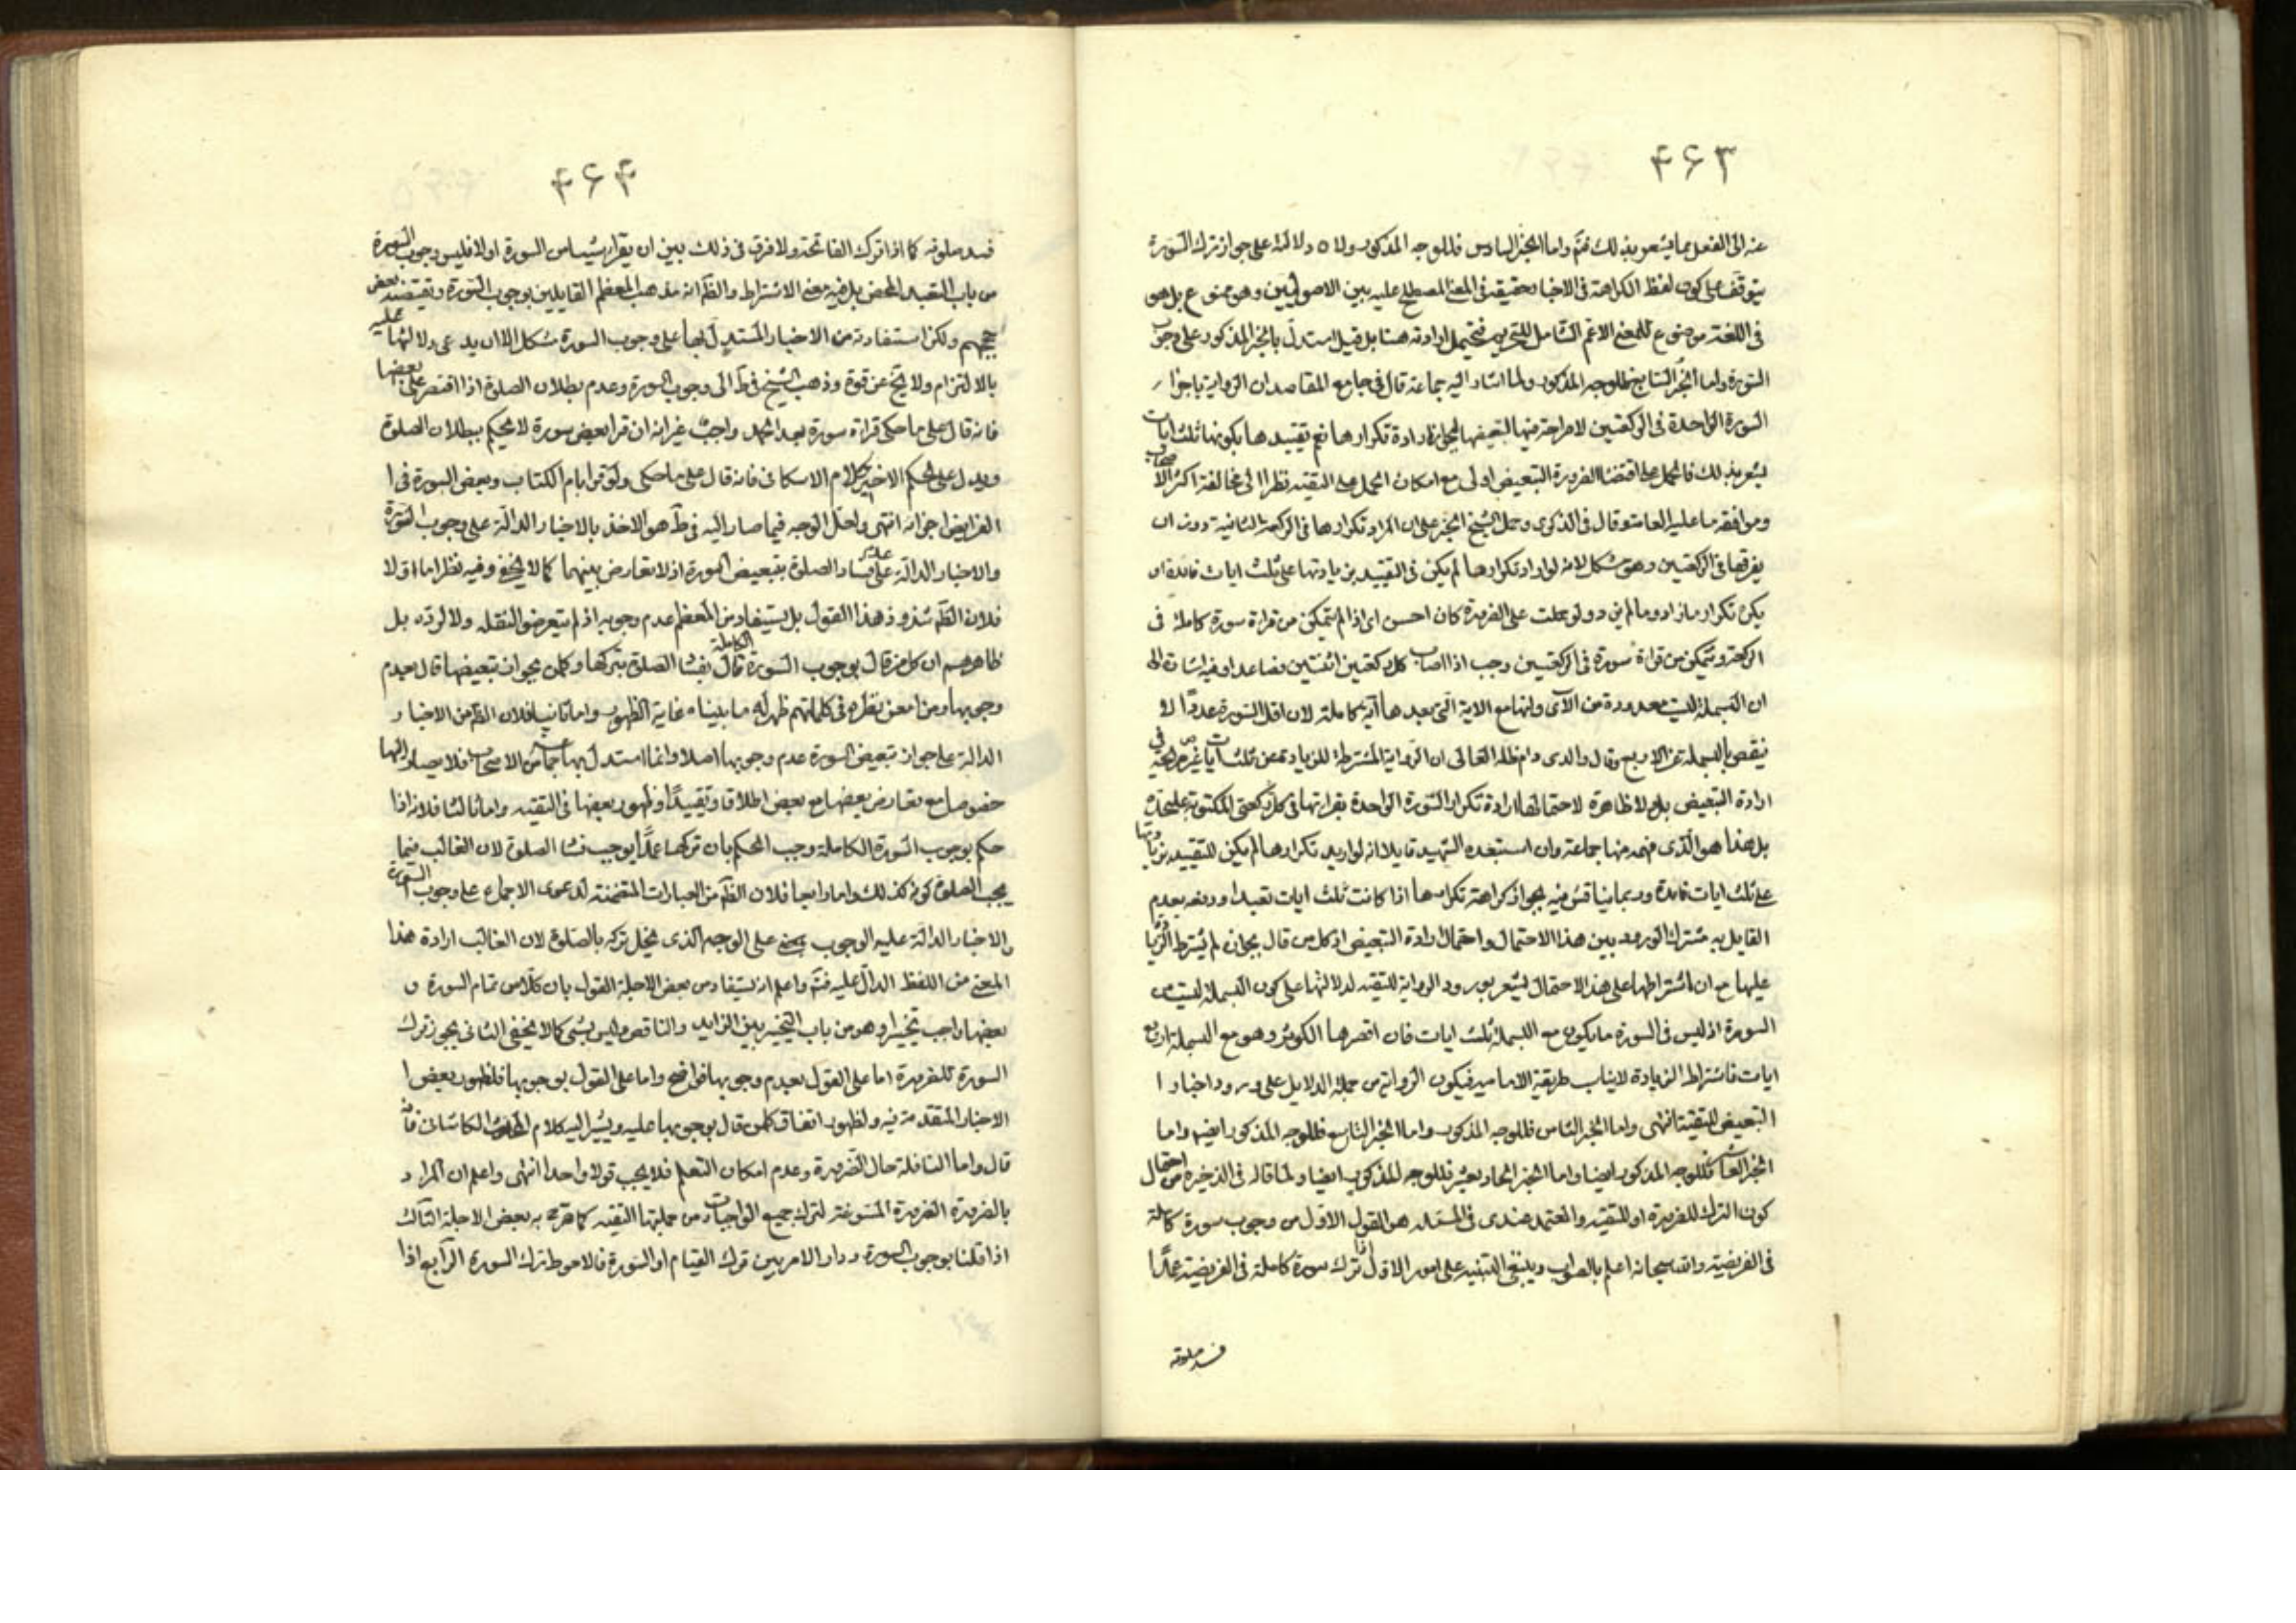 ۴۶۳
عنه الى الفعل بما يشعر بذلك فتم واما الخبر السادس فللوجه المذكور ولا دلالة على جواز ترك السورة
يتوقف على كون لفظ الكراهة فى الاخبار حقيقة فى المعنى المصطلح عليه بين الاصوليين وهو ممنوع بل هو
فى اللغة موضوع للمعنى الاعم الشامل للتحريم فيحتمل ارادته هنا بل قيل استدل بالخبر المذكور على وجوب
السورة واما الخبر السابع فللوجه المذكور ولما اشار اليه جماعة قال فى جامع المقاصد ان الرواية باجزاء
السورة الواحدة فى الركعتين لا صراحة فيها لتبعيضها لجواز ارادة تكرارها نعم تقييدها بكونها ثلث ايات
يشعر بذلك فالحمل على اقتضاء الضرورة التبعيض اولى مع امكان الحمل على التقية نظرا الى مخالفة اكثر الاصحاب
وموافقة ما عليه العامة وقال فى الذكرى وحمل الشيخ الخبر على ان المراد تكرارها فى الركعة الثانية دون ان
يفرقها فى الركعتين وهو مشكل لانه لو اراد تكرارها لم يكن فى التقييد بزيادتها على ثلث ايات فائدة اذ
يكن تكرار ما زاد وما لم يزد ولو حملت على الضرورة كان احسن اى اذا لم يتمكن من قراة سورة كاملة فى
الركعة ويتمكن من قراة سورة فى الركعتين وجب اذا اصاب كل ركعتين اثنتين فصاعدا وفيه اشارة الى
ان البسملة ليست معدودة من الآى وانها مع الاية التى بعدها آية كاملة لان اقل السورة عددا لا
ينقص بالبسملة عن الاربع وقال والدى دام ظله العالى ان الرواية المشترطة للزيادة عن ثلث ايات غير صريحة فى
ارادة التبعيض بل ولا ظاهرة لاحتمالها ارادة تكرار السورة الواحدة بقراتها فى كل ركعتى المكتوبة على حدة
بل هذا هو الذى فهمه منها جماعة وان استبعده الشهيد قايلا انه لو اريد تكرارها لم يكن للتقييد بزيادتها
على ثلث ايات فائدة وربما يناقش فيه بجواز كراهة تكرارها اذا كانت ثلث ايات تعبدا ودفعه بعدم
القايل به مشترك الورود بين هذا الاحتمال واحتمال ارادة التبعيض اذ كل من قال بجوازه لم يشترط الزيادة
عليها مع ان اشتراطها على هذا الاحتمال يشعر بورود الرواية للتقية لدلالتها على كون البسملة ليست من
السورة اذ ليس فى السورة ما يكون مع البسملة ثلث ايات فان اقصرها الكوثر وهو مع البسملة اربع
ايات فاشتراط الزيادة لا يناسب طريقة الامامية فيكون الرواية من جملة الدلايل على ورود اخبار ا
التبعيض للتقية انتهى واما الخبر الثامن فللوجه المذكور واما الخبر التاسع فللوجه المذكور ايضا واما
الخبر العاشر فللوجه المذكور ايضا واما الخبر الحاديعشر فللوجه المذكور ايضا ولما قاله فى الذخيرة من احتمال
كون الترك للضرورة او للتقية والمعتمد عندى فى المسئلة هو القول الاول من وجوب سورة كاملة
فى الفريضة والله سبحانه اعلم بالصواب وينبغى التنبيه على امور الاول اذا ترك سورة كاملة فى الفريضة عمدا
فسد صلوته
۴۶۴
فسد صلوته كما اذا ترك الفاتحة ولا فرق فى ذلك بين ان يقرا شيئا من السورة اولا فليس وجوب السورة
من باب التعبد المحض بل فيه معنى الاشتراط والظاهر انه مذهب المعظم القايلين بوجوب السورة ويقتضيه بعض
حججهم ولكن استفادته من الاخبار المستدل بها على وجوب السورة مشكل الا ان يدعى دلالتها عليه
بالالتزام ولا يخ عن قوة وذهب الشيخ فى ط الى وجوب السورة وعدم بطلان الصلوة اذا اقتصر على بعضها
فانه قال على ما حكى قراة سورة بعد الحمد واجب غير انه ان قرا بعض سورة لا يحكم ببطلان الصلوة
ويدل على الحكم الاخير كلام الاسكافى فانه قال على ما حكى ولو قرا بام الكتاب وبعض السورة فى ا
الفرايض اجزاه انتهى ولعل الوجه فيما صار اليه فى ط هو الاخذ بالاخبار الدالة على وجوب السورة
والاخبار الدالة على عدم فساد الصلوة بتبعيض السورة اذ لا تعارض بينهما كما لا يخفى وفيه نظر اما اولا
فلان الظم شذوذ هذا القول بل يستفاد من المعظم عدم وجوبه اذ لم يتعرضوا لنقله ولا لرده بل
ظاهرهم ان كل من قال بوجوب السورة الكاملة قال بفساد الصلوة بتركها وكل من يجوز تبعيضها قال بعدم
وجوبها ومن امعن نظره فى كلماتهم ظهر له ما بيناه غاية الظهور واما ثانيا فلان الظم من الاخبار
الدالة على جواز تبعيض السورة عدم وجوبها اصلا وانما استدل بها جماعة من الاصحاب فلا يصار اليها
خصوصا مع تعارض بعضها مع بعض اطلاقا وتقييدا وظهور بعضها فى التقية واما ثالثا فلانه اذا
حكم بوجوب السورة الكاملة وجب الحكم بان تركها عمدا يوجب فساد الصلوة لان الغالب فيما
يجب للصلوة كونه كذلك واما رابعا فلان الظم من العبارات المتضمنة لدعوى الاجماع على وجوب السورة
والاخبار الدالة عليه الوجوب على الوجه الذى يخل تركه بالصلوة لان الغالب ارادة هذا
المعنى من اللفظ الدال عليه فتم واعلم انه يستفاد من بعض الاجلة القول بان كلا من تمام السورة و
بعضها واجب تخييرا وهو من باب التخيير بين الزايد والناقص وليس بشى كما لا يخفى الثانى يجوز ترك
السورة للضرورة اما على القول بعدم وجوبها فواضح واما على القول بوجوبها فلظهور بعض ا
الاخبار المتقدمة فيه ولظهور اتفاق كل من قال بوجوبها عليه ويشير اليه كلام المحدث الكاشانى فانه
قال واما النافلة حال الضرورة وعدم امكان التعلم فلا يجب قولا واحدا انتهى واعلم ان المراد
بالضرورة الضرورة المسوغة لترك جميع الواجبات ومن جملتها التقية كما صرح به بعض الاجلة الثالث
اذا قلنا بوجوب السورة ودار الامر بين ترك القيام او السورة فالاحوط ترك السورة الرابع اذا